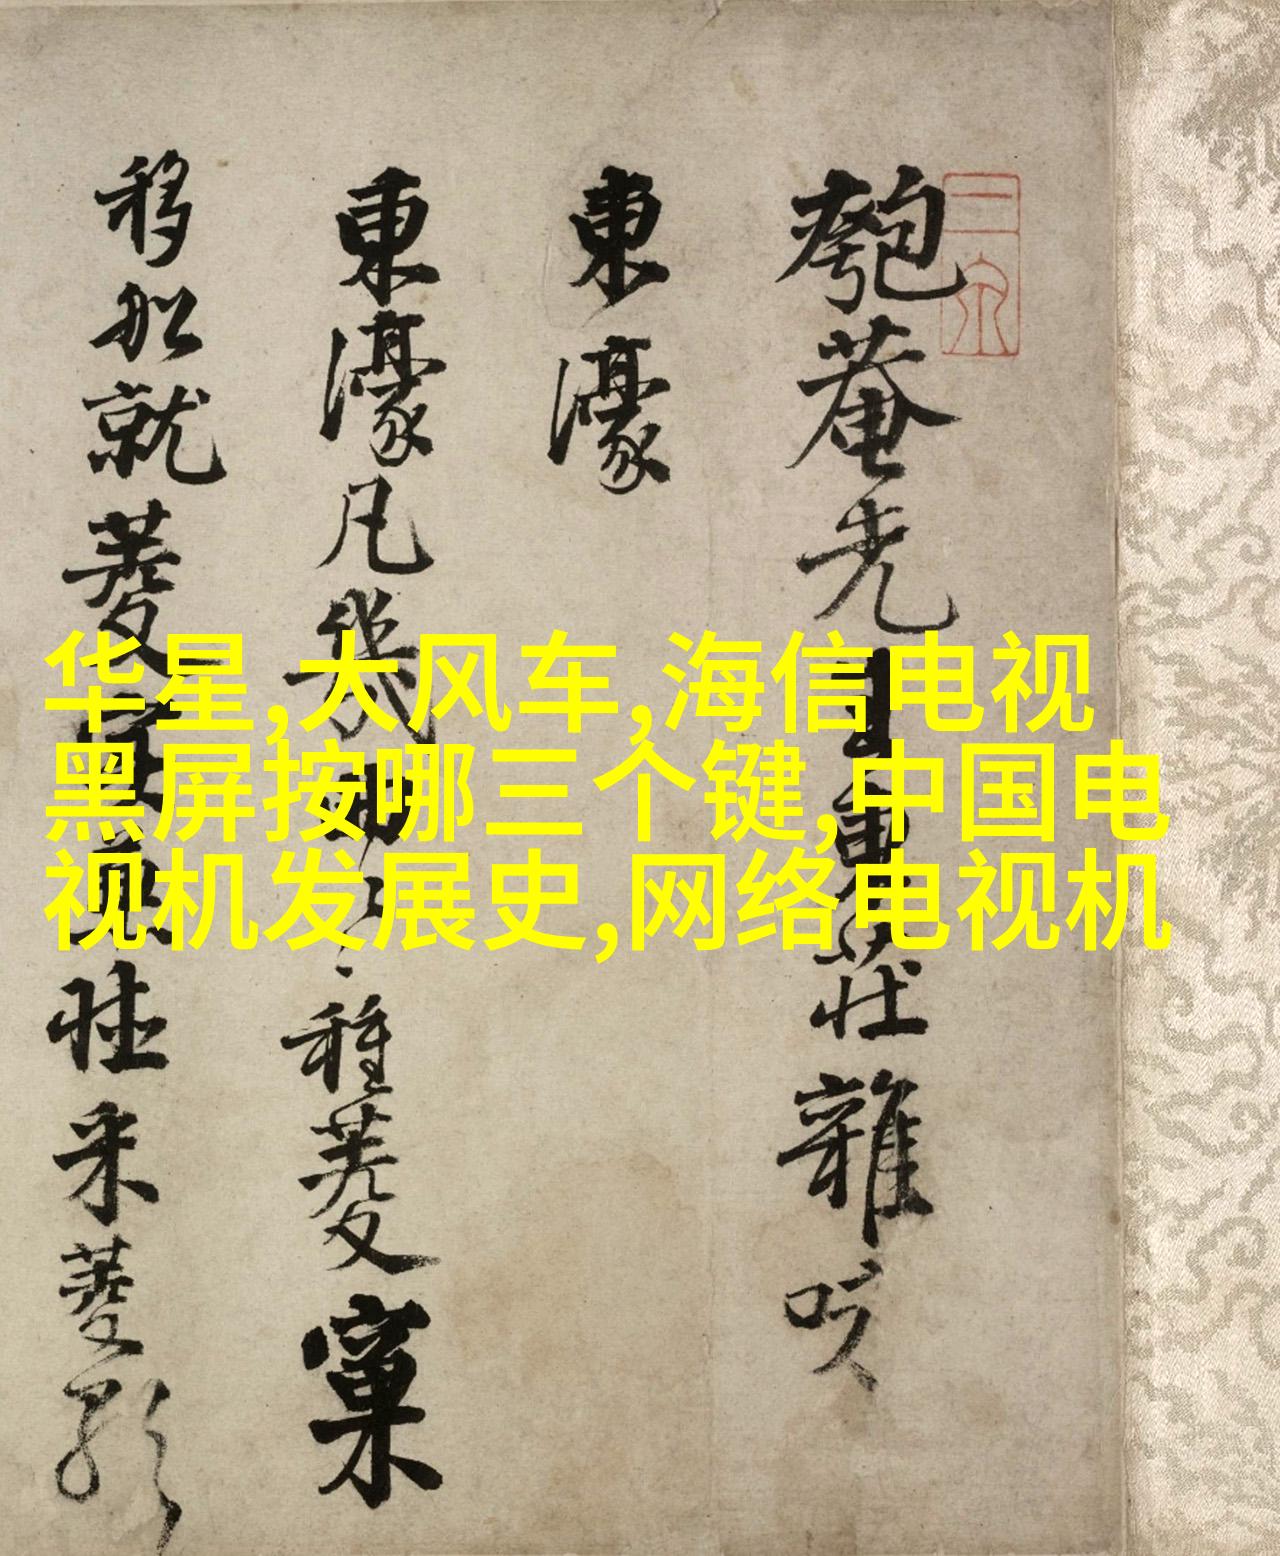 华星,大风车,海信电视
黑屏按哪三个键,中国电
视机发展史,网络电视机
二泉
匏菴先東莊雜咏
東濠
東濠凡幾種菱窠
移船就菱采菱